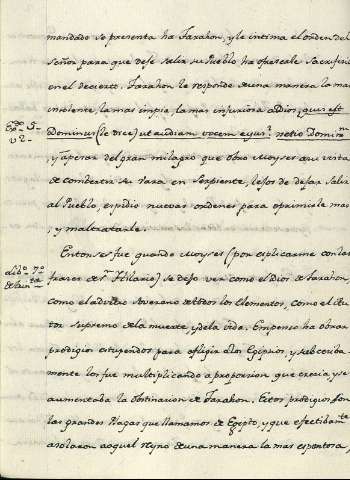 mandado se presenta ha Farahon, y le intima el orden del
Señor para que deje salir su Pueblo ha ofrecerle Sacrificio
en el decierto. Farahon le responde de una manera la mas
insolente, la mas impia, la mas injuriosa a Dios, quis est
Exo. 5.
v 2.
Dominus (le dice) ut audiam vocem ejus? nescio Dominum
y apesar del gran milagro que obro Moyses a su vista
de combertir su vara en Serpiente, lejos de dejar Salir
al Pueblo, expidio nuevas ordenes para oprimirle mas
, y maltratarle.
Entonses fue quando Moyses (por esplicarme con las
lib. 7.
frazes de Sn. Hilario) se dejo ver como el Dios de Farahon,
como el advitro Soverano de todos los Elementos, como el
tor Supremo de la muerte, y de la vida. Empeso ha obrar
prodigios estupendos para afligir a los Egipcios, y subceciva-
mente los fue multiplicando a proporsion que crecia, y se
aumentaba la obstinacion de Farahon. Estos prodigios son
las grandes Plagas que llamamos de Egipto, y que efectibamte.
asolaron aquel Reyno de una manera la mas espantosa,